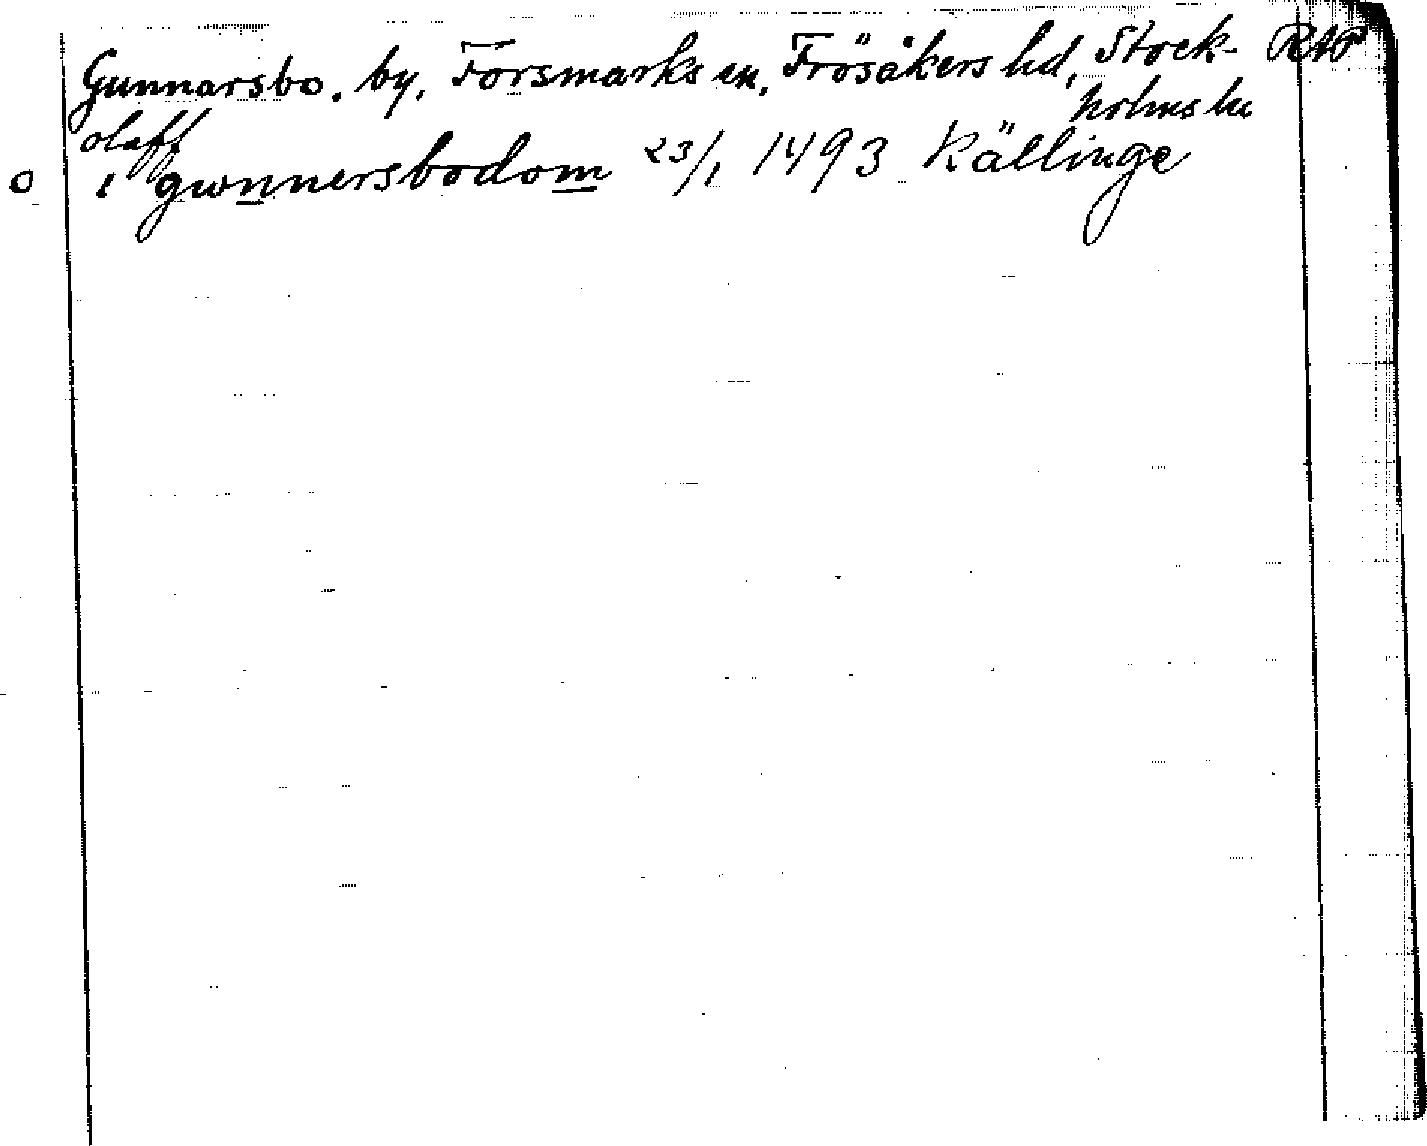 Gunnarsbo. by, Forsmarks sn, Frösåkers hd, Stock- RAP
holms län
olaff
o i gwnnersbodom 23/1 1493 Källinge